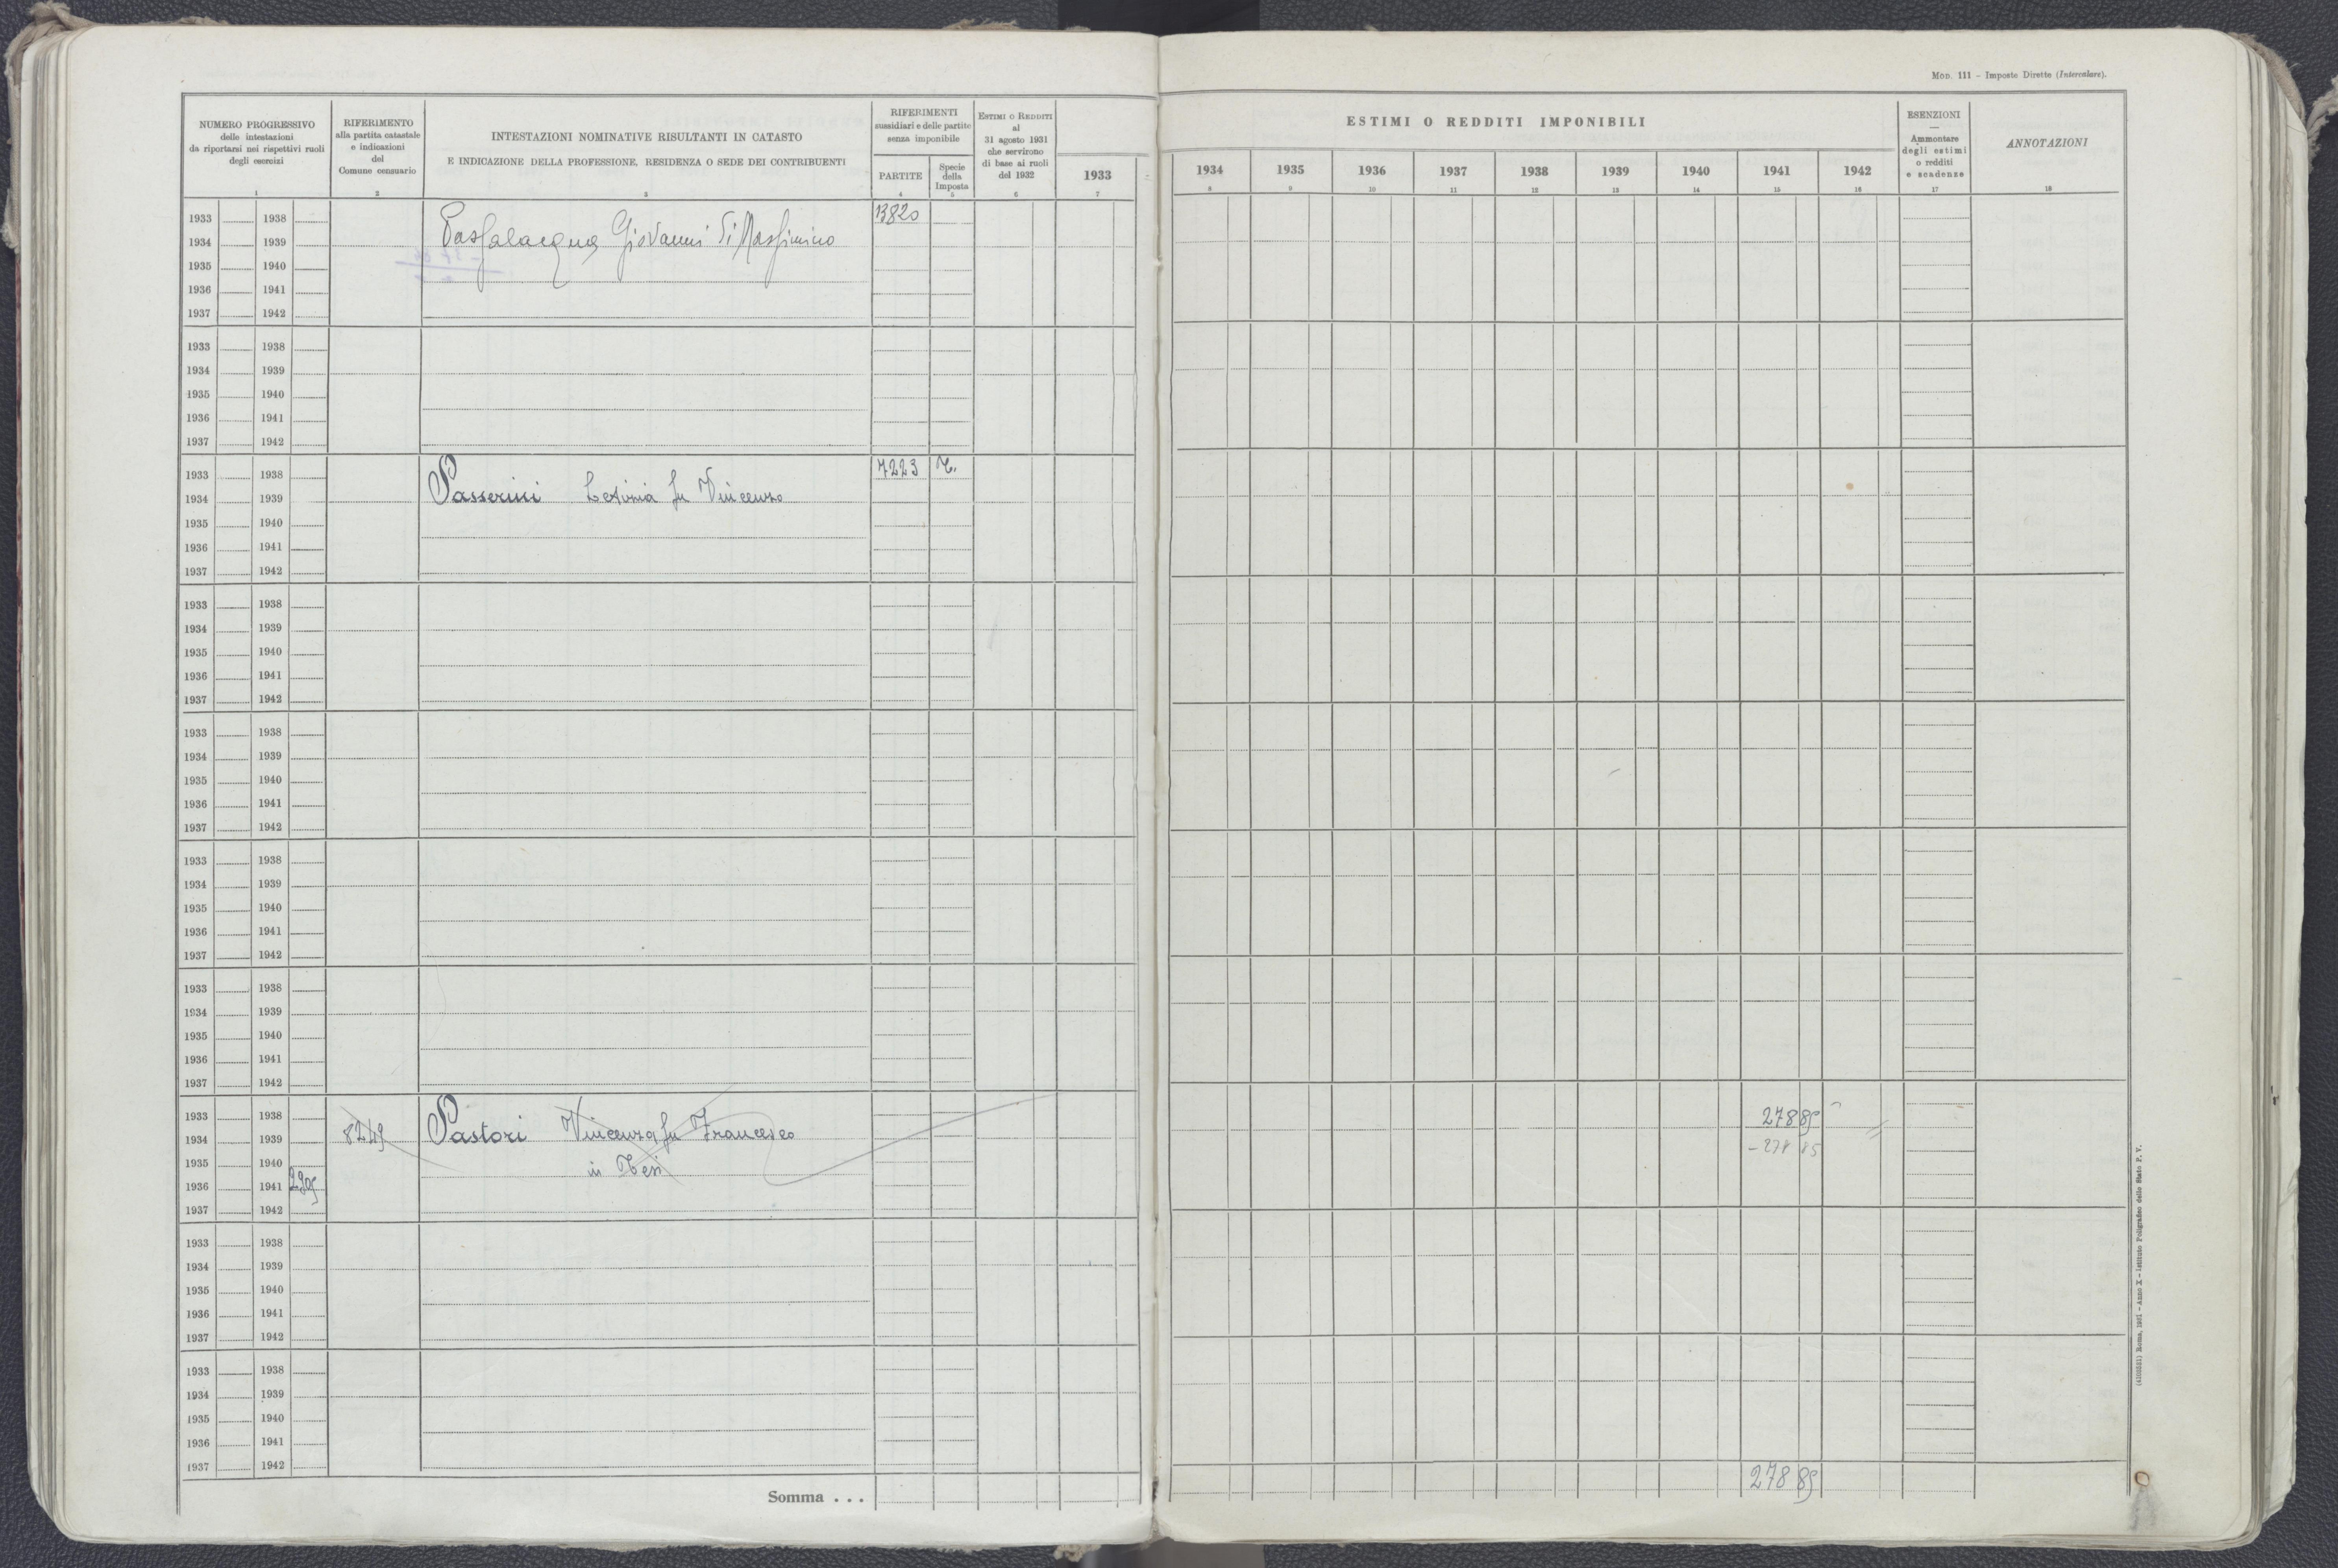 Mod. 111 - Imposte Dirette (Intercalare).
NUMERO PROGRESSIVO
delle intestazioni
da riportarsi nei rispettivi ruoli
degli esercizi
1
RIFERIMENTO
alla partita catastale
e indicazioni
del
Comune censuario
2
INTESTAZIONI NOMINATIVE RISULTANTI IN CATASTO
E INDICAZIONE DELLA PROFESSIONE, RESIDENZA O SEDE DEI CONTRIBUENTI
3
RIFERIMENTI
sussidiari e delle partite
senza imponibile
PARTITE
4
Specie
della
Imposta
5
Estimi o Redditi
al
31 agosto 1931
che servirono
di base ai ruoli
del 1932
6
1933
7
ESTIMI O REDDITI IMPONIBILI
1934 1935 1936 1937 1938 1939 1940 1941 1942
8 9 10 11 12 13 14 15 16
ESENZIONI
—
Ammontare
degli estimi
o redditi
e scadenze
17
ANNOTAZIONI
18
1933 1938 13820
1934 1939 Passalacqua Giovanni di Massimino
1935 1940
1936 1941
1937 1942
1933 1938
1934 1939
1935 1940
1936 1941
1937 1942
1933 1938 7223 T.
1934 1939 Passerini Letizia fu Vincenzo
1935 1940
1936 1941
1937 1942
1933 1938
1934 1939
1935 1940
1936 1941
1937 1942
1933 1938
1934 1939
1935 1940
1936 1941
1937 1942
1933 1938
1934 1939
1935 1940
1936 1941
1937 1942
1933 1938
1934 1939
1935 1940
1936 1941
1937 1942
1933 1938 278 85
1934 1939 8249 Pastori Vincenza fu Francesco
1935 1940 in Tesi - 278 85
1936 1941 2305
1937 1942
1933 1938
1934 1939
1935 1940
1936 1941
1937 1942
1933 1938
1934 1939
1935 1940
1936 1941
1937 1942
Somma . . . 278 85
Roma, 1931 - Anno X - Istituto Poligrafico dello Stato P. V.